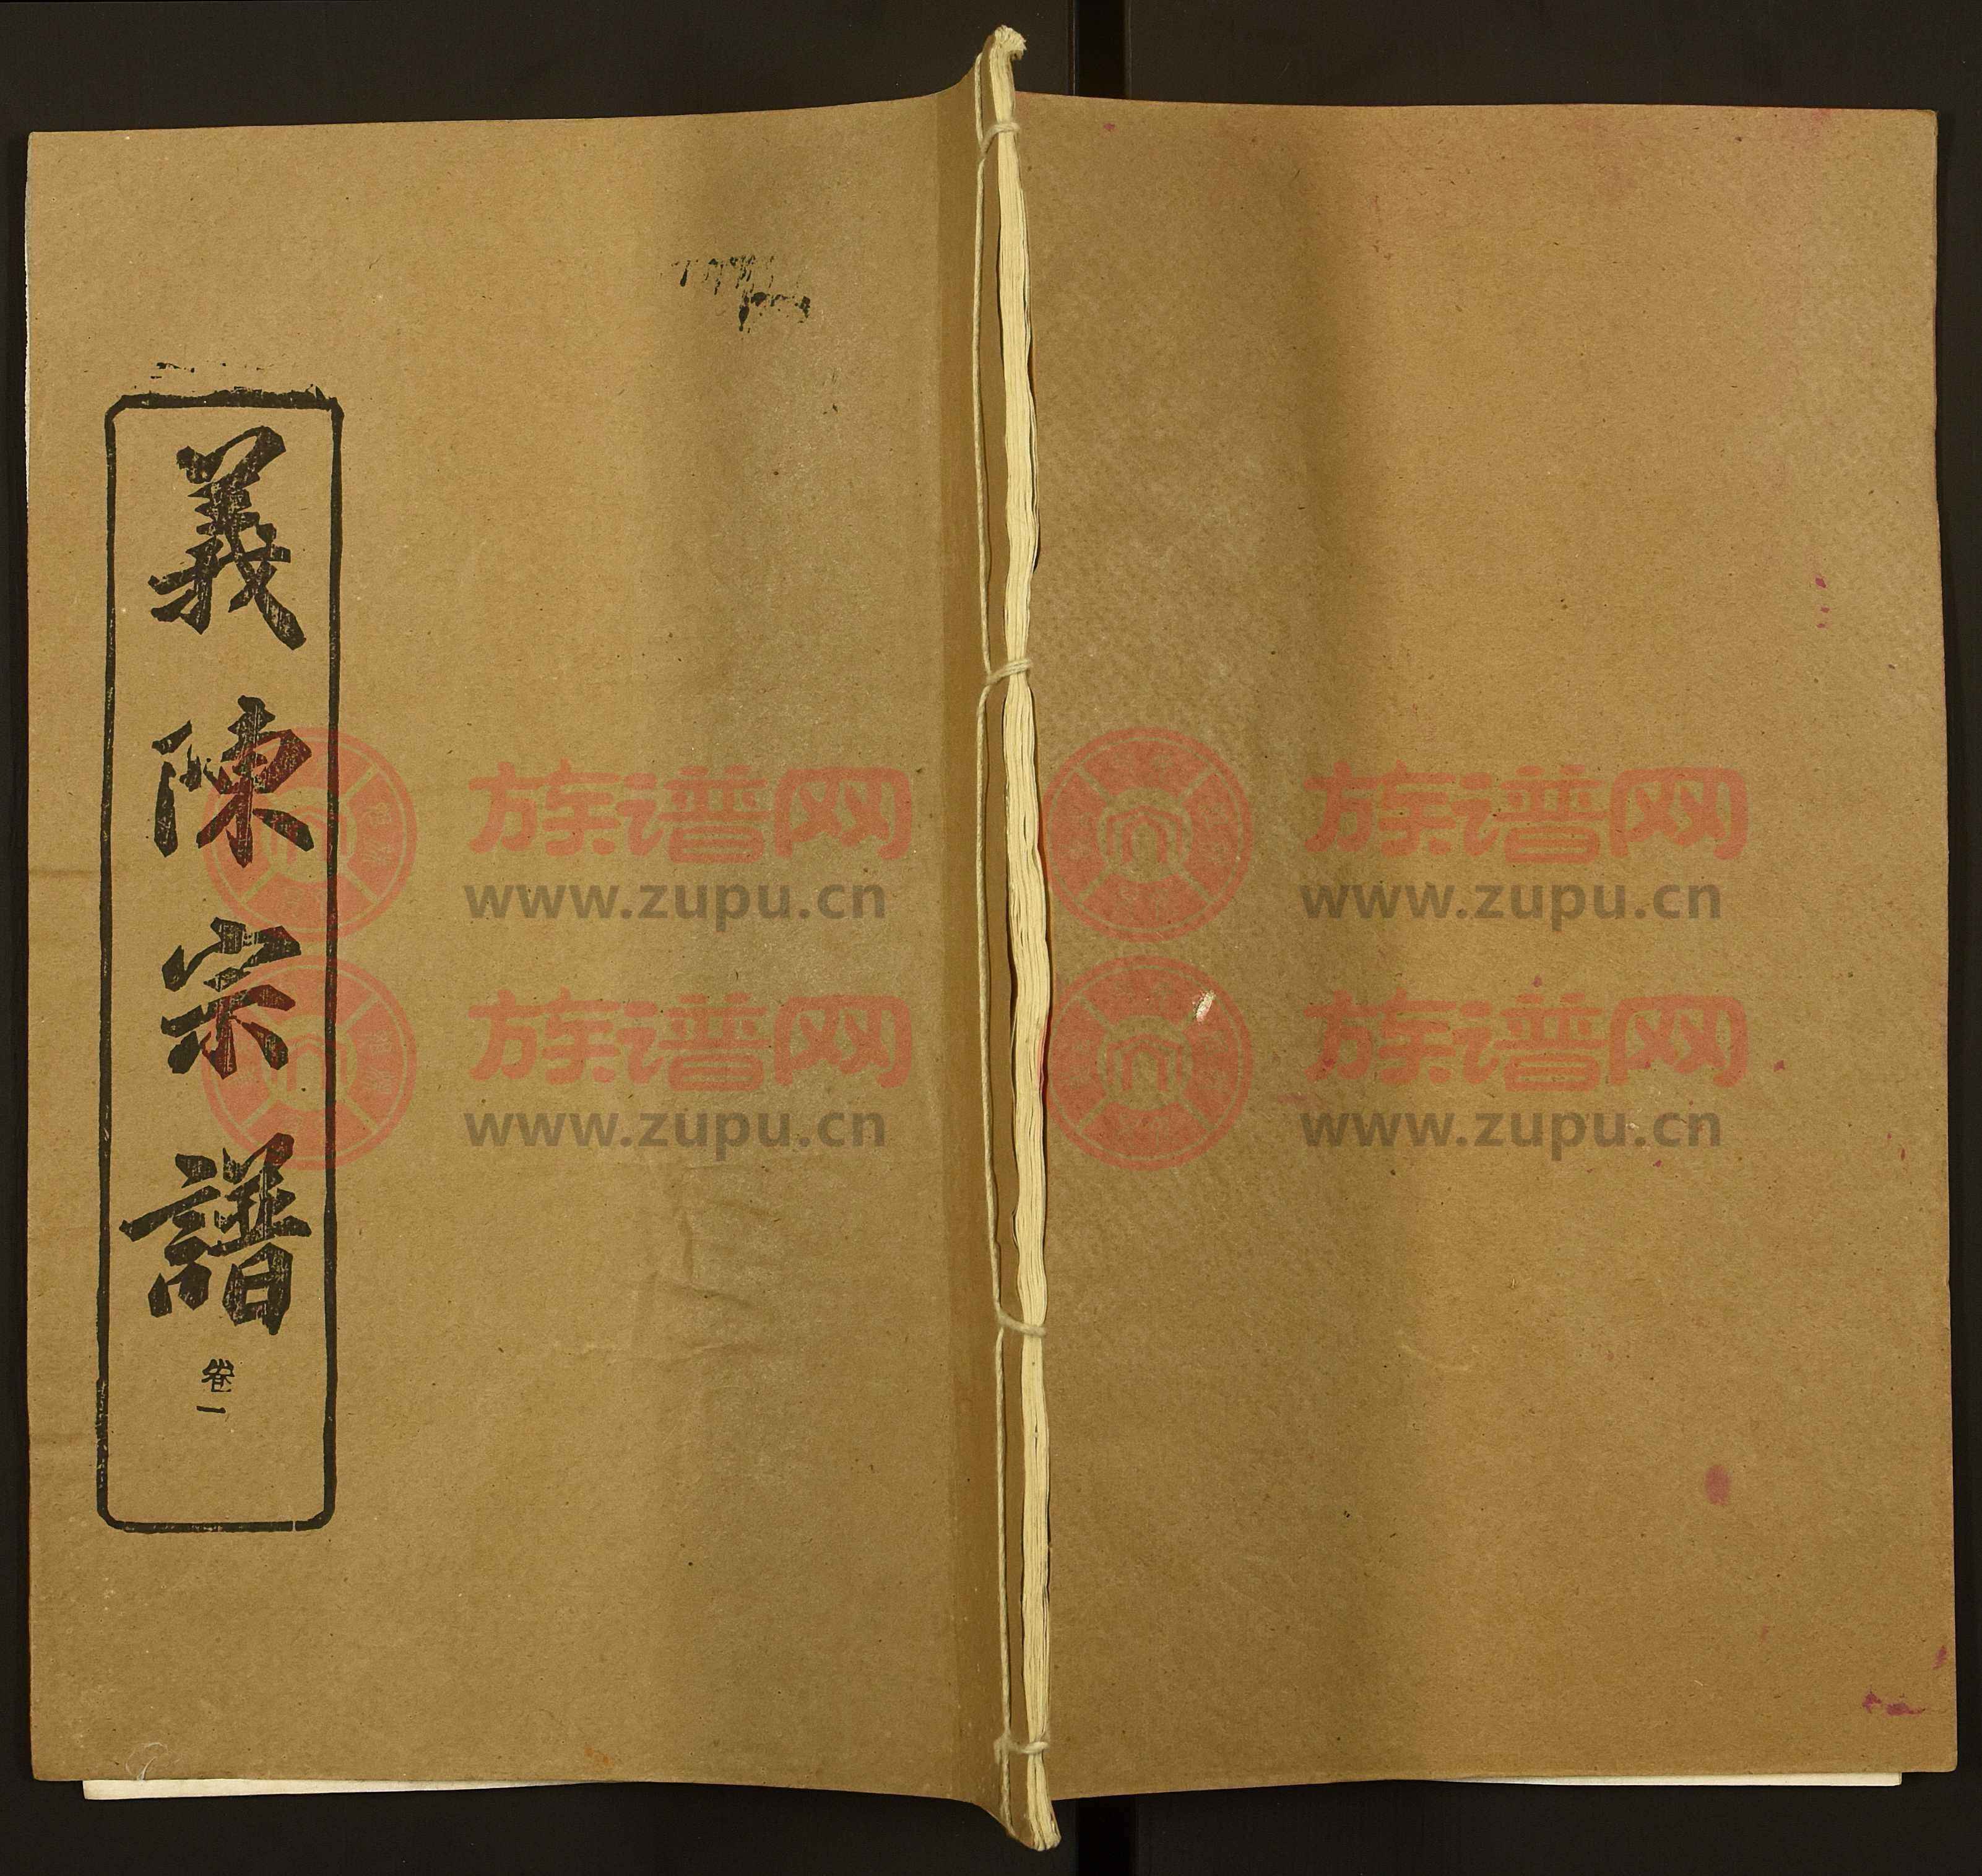 義陳宗譜
卷一
族谱网
www.zupu.cn
族谱网
www.zupu.cn
族谱网
www.zupu.cn
族谱网
www.zupu.cn